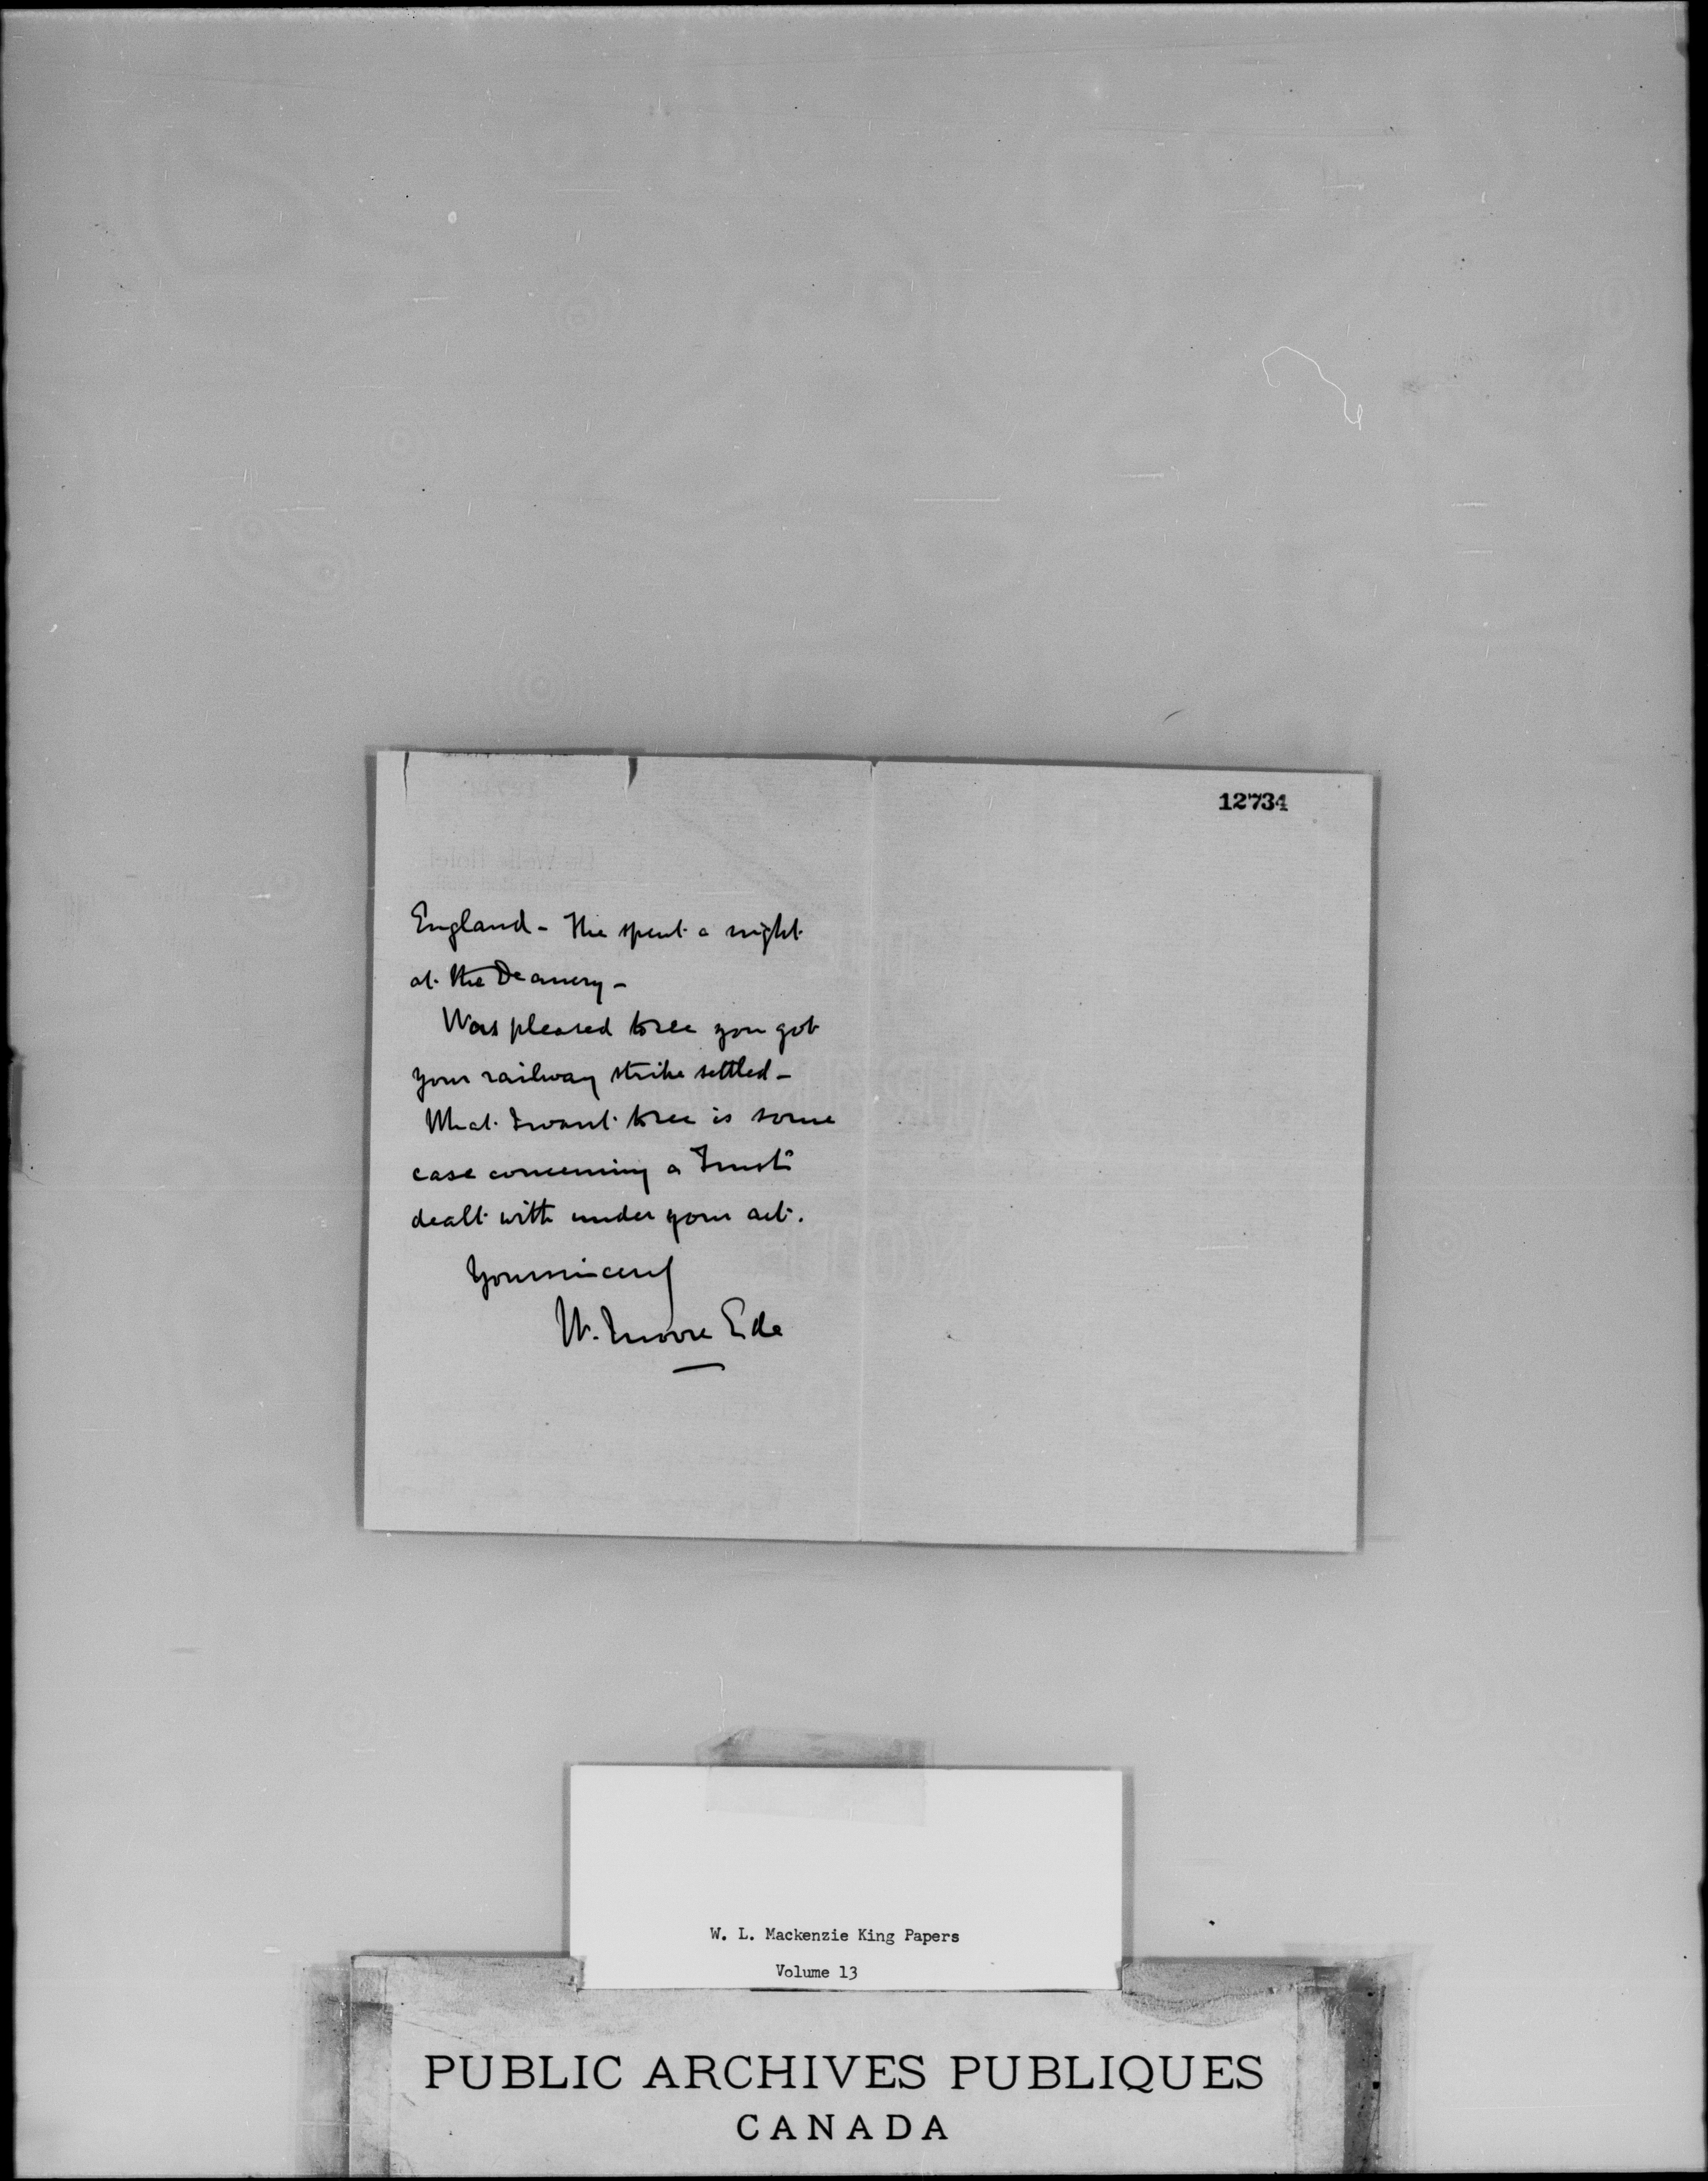 12734
England - He spent a night
at the Deanery -
Was pleased to see you got
your railway strike settled -
What I want to see is some
case concerning a Trust
dealt with under your act.
Yours sincerely
W. Moore Ede
W. L. Mackenzie King Papers
Volume 13
PUBLIC ARCHIVES PUBLIQUES
CANADA